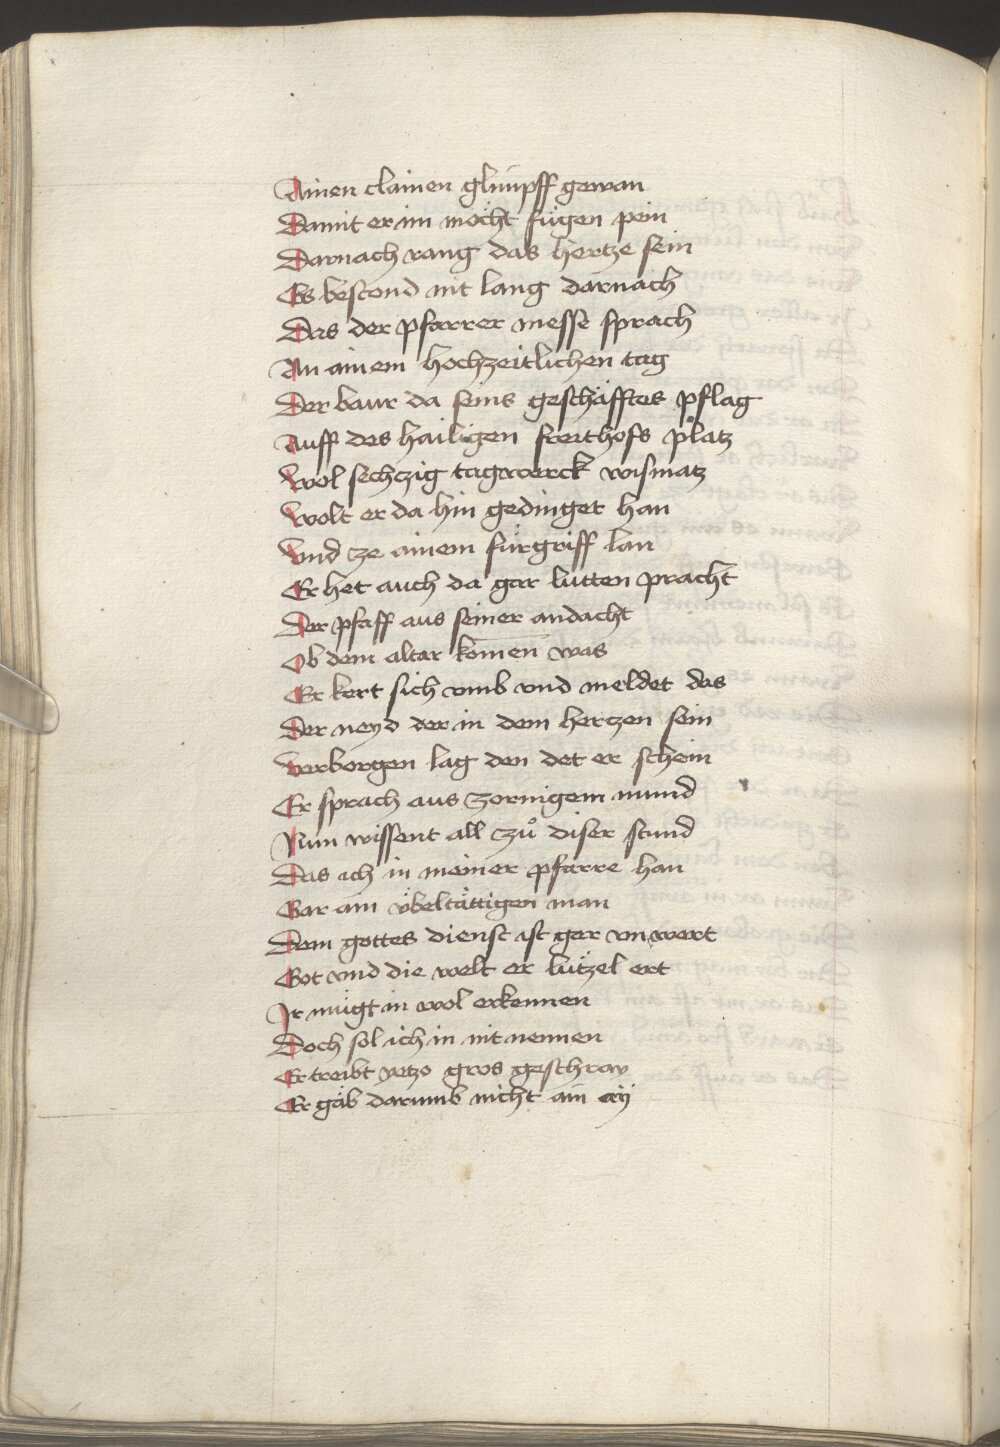 Ainen clainen glimpff gewan
Damit er im möcht fügen pein
Darnach rang das hertze sein
Es bestond nit lang darnach
Das der pfarrer messe sprach
An ainem hochzeitlichen tag
Der baur da seins geschäfftes pflag
Auff des hailigen freithofs platz
Wol sechczig tagwerck wismatz
Wolt er da hin gedinget han
Vnd ze ainem fürgriff lan
Er het auch da gar lutten pracht
Der pfaff aus seiner andacht
Ob dem altar komen was
Er kert sich vmb vnd meldet das
Der neyd der in dem hertzen sein
Verborgen lag den det er schein
Er sprach aus zornigem mund
Nun wissent all zuͦ diser stund
Das ich in meiner pfarre han
Gar ain übeltättigen man
Dem gottes dienst ist gar vnwert
Got vnd die welt er lützel ert
Ir mügt in wol erkennen
Doch sol ich in nit nennen
Er treibt yetzo gros geschray
Er gäb darumb nicht ain ey